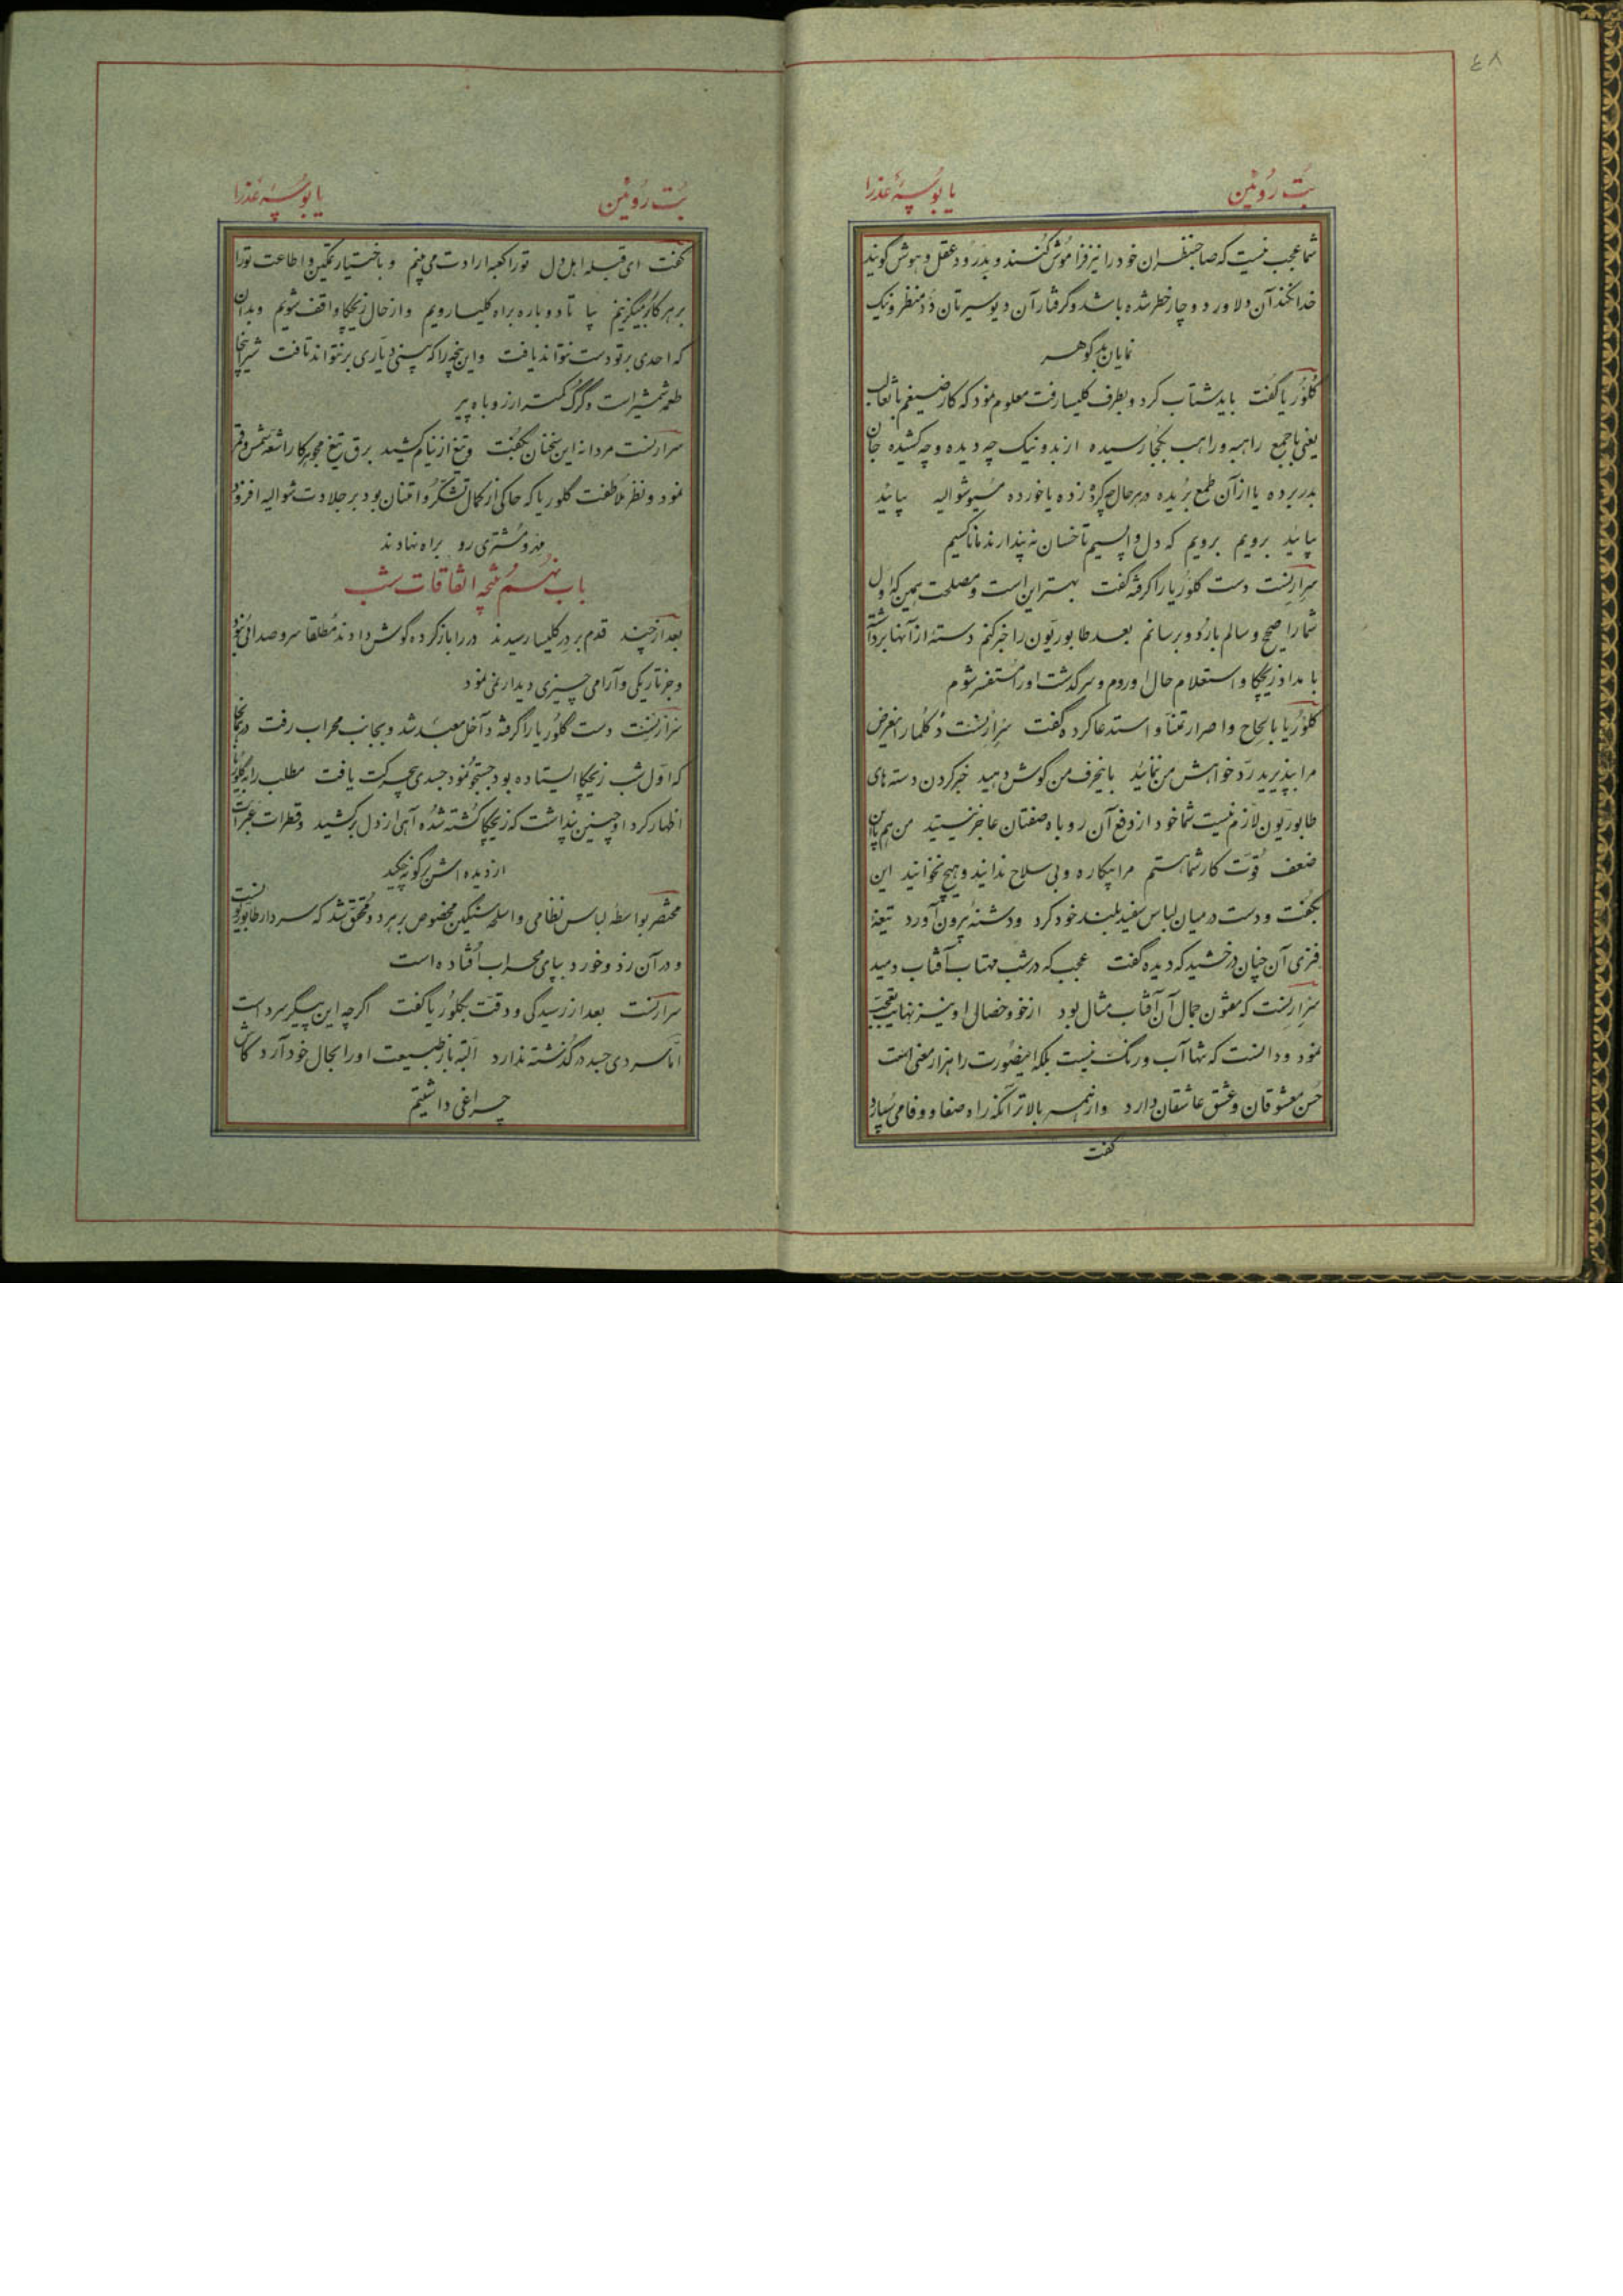 ٤٨
بُت رُوئین یا بُوسهٔ عَذرا
شما عجب نیست که صاحبنظران خود را نیز فراموش کنند و بدرود عقل و هوش گویند
خدا نکند آن دلاور دوچار خطر شده باشد و گرفتار آن دیوسیرتان دد منظر و نیک
نمایان بد گوهر
گلوریا گفت باید شتاب کرد و بطرف کلیسا رفت معلوم نمود که کار ضیغم با ثعالب
یعنی با جمع راهبه و راهب بکجا رسیده از بد و نیک چه دیده و چه کشیده جان
بدر برده یا از آن طمع بریده در هر حال چه کرده زده یا خورده مُسیو شوالیه بیائید
بیائید برویم برویم که دل واپسیم تا خسان نه پندارند ما ناکسیم
سرارنست دست گلوریا را گرفته گفت بهتر این است و مصلحت همین که اول
شما را صحیح و سالم باردو برسانم بعد طابوریون را خبر کنم دستهٔ از آنها برداشته
با مداد زیچکا و استعلام حال او روم و سرگذشت او را مستفسر شوم
گلوریا با الحاح و اصرار تمنا و استدعا کرده گفت سرارنست دُ کلمار این عرض
مرا بپذیرید ردّ خواهش من ننمائید باین حرف من گوش دهید خبر کردن دسته های
طابوریون لازم نیست شما خود از دفع آن روباه صفتان عاجز نیستید من هم با این
ضعف قوّت کار شما هستم مرا بیکاره و بی سلاح ندانید و هیچ نخوانید این
بگفت و دست در میان لباس سفید بلند خود کرد و دشنهٔ بیرون آورد تیغهٔ
فلزی آن چنان درخشید که دیده گفت عجب که در شب مهتاب آفتاب دمید
سرارنست که مفتون جمال آن آفتاب مثال بود از خو و خصال او نیز نهایت تعجّب
نمود و دانست که تنها آب و رنگ نیست بلکه این صورت را هزار معنی است
حُسن معشوقان و عشق عاشقان دارد و از همه بالاتر آنکه راه صفا و وفا می سپارد
گفت
بُت رُوئین یا بُوسهٔ عَذرا
گفت ای قبله اهل دل تو را کعبه ارادت می بینم و باختیار تمکین و اطاعت تو را
بر هر کار میگزینم بیا تا دوباره براه کلیسا رویم و از حال زیچکا واقف شویم و بدان
که احدی بر تو دست نتواند یافت و این پنجه را که بینی دیاری بر نتواند تافت شیر اینجا
طعمه شمشیر است و گرگ کمتر از روباه پیر
سرارنست مردانه این سخنان بگفت و تیغ از نیام کشید برق تیغ مجوهر کار اشعه شمس و قمر
نمود و نظر ملاطفت گلوریا که حاکی از کمال تشکّر و امتنان بود بر جلادت شوالیه افزود
مه و مشتری رو براه نهادند
باب نهم نتیجه اتفاقات شب
بعد از چند قدم بر در کلیسا رسیدند در را باز کرده گوش دادند مطلقا سر و صدائی نبود
و جز تاریکی و آرامی چیزی دیدار نمی نمود
سرارنست دست گلوریا را گرفته داخل معبد شد و بجانب محراب رفت در آنجا
که اوّل شب زیچکا ایستاده بود جستجو نمود جسدی بیحرکت یافت مطلب را به گلوریا
اظهار کرد او چنین پنداشت که زیچکا کشته شده آهی از دل بر کشید و قطرات عبرات
از دیده اش بر گونه چکید
محتضر بواسطه لباس نظامی و اسلحه سنگین مخصوص بر برد و محقق شد که سردار طابوریونست
و در آن زد و خورد بپای محراب افتاده است
سرارنست بعد از رسیدگی و دقت بگلوریا گفت اگر چه این پیکر سرد است
امّا سردی جسد درگذشته ندارد البته باز طبیعت او را بحال خود آرد کاش
چراغی داشتیم